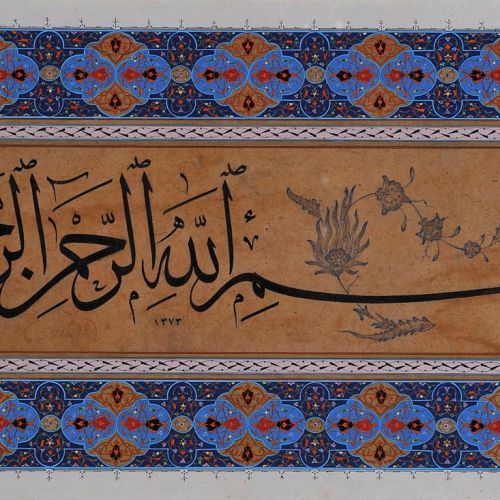 سمِ ٱللَّهِ ٱلرَّحْمَٰنِ ٱلرَّح
١٣٧٣